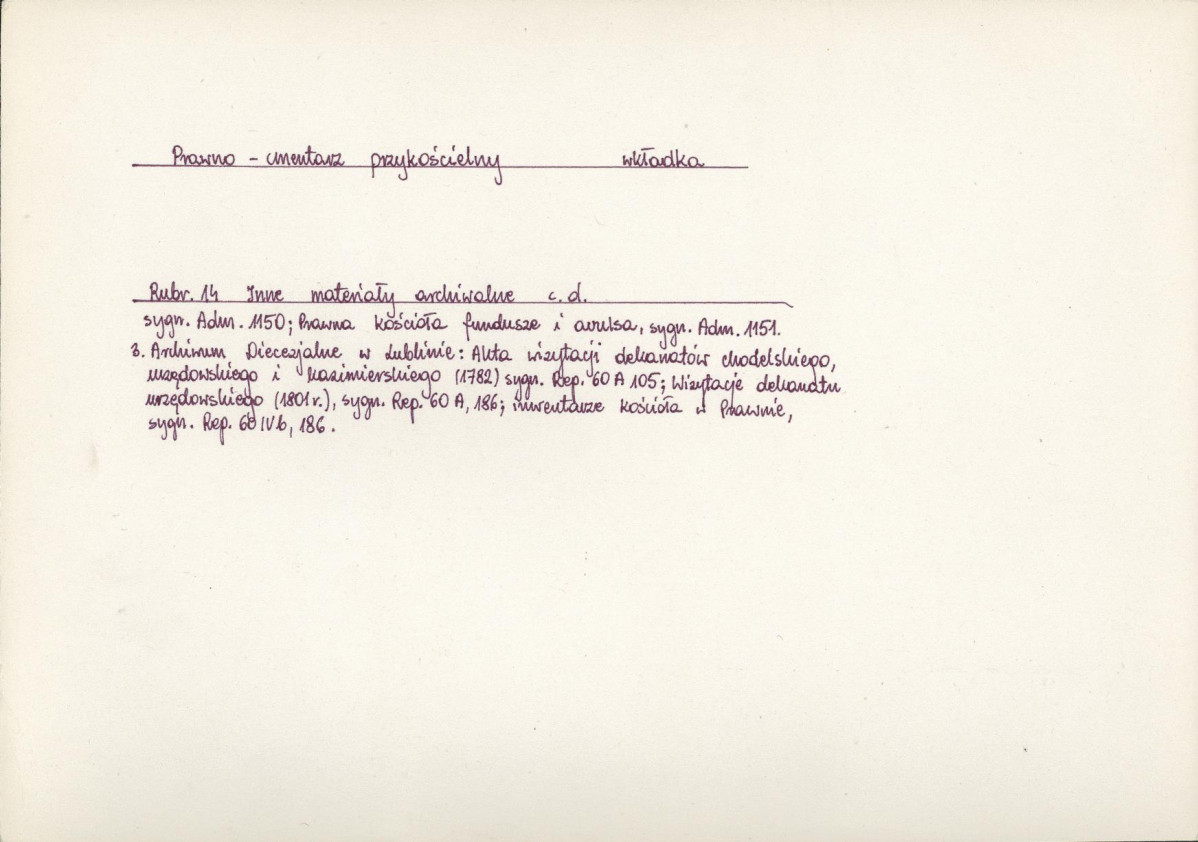 Prawno - cmentarz przykościelny wkładka
Rubr. 14 Inne materiały archiwalne c.d.
sygn. Adm. 1150; Prawna kościoła fundusze i avulsa, sygn. Adm. 1151.
3. Archiwum Diecezjalne w Lublinie: Akta wizytacji dekanatów chodelskiego,
urzędowskiego i kazimierskiego (1782) sygn. Rep. 60 A 105; Wizytacje dekanatu
urzędowskiego (1801 r.), sygn. Rep. 60 A, 186; inwentarze kościoła w Prawnie,
sygn. Rep. 60 IVb, 186.